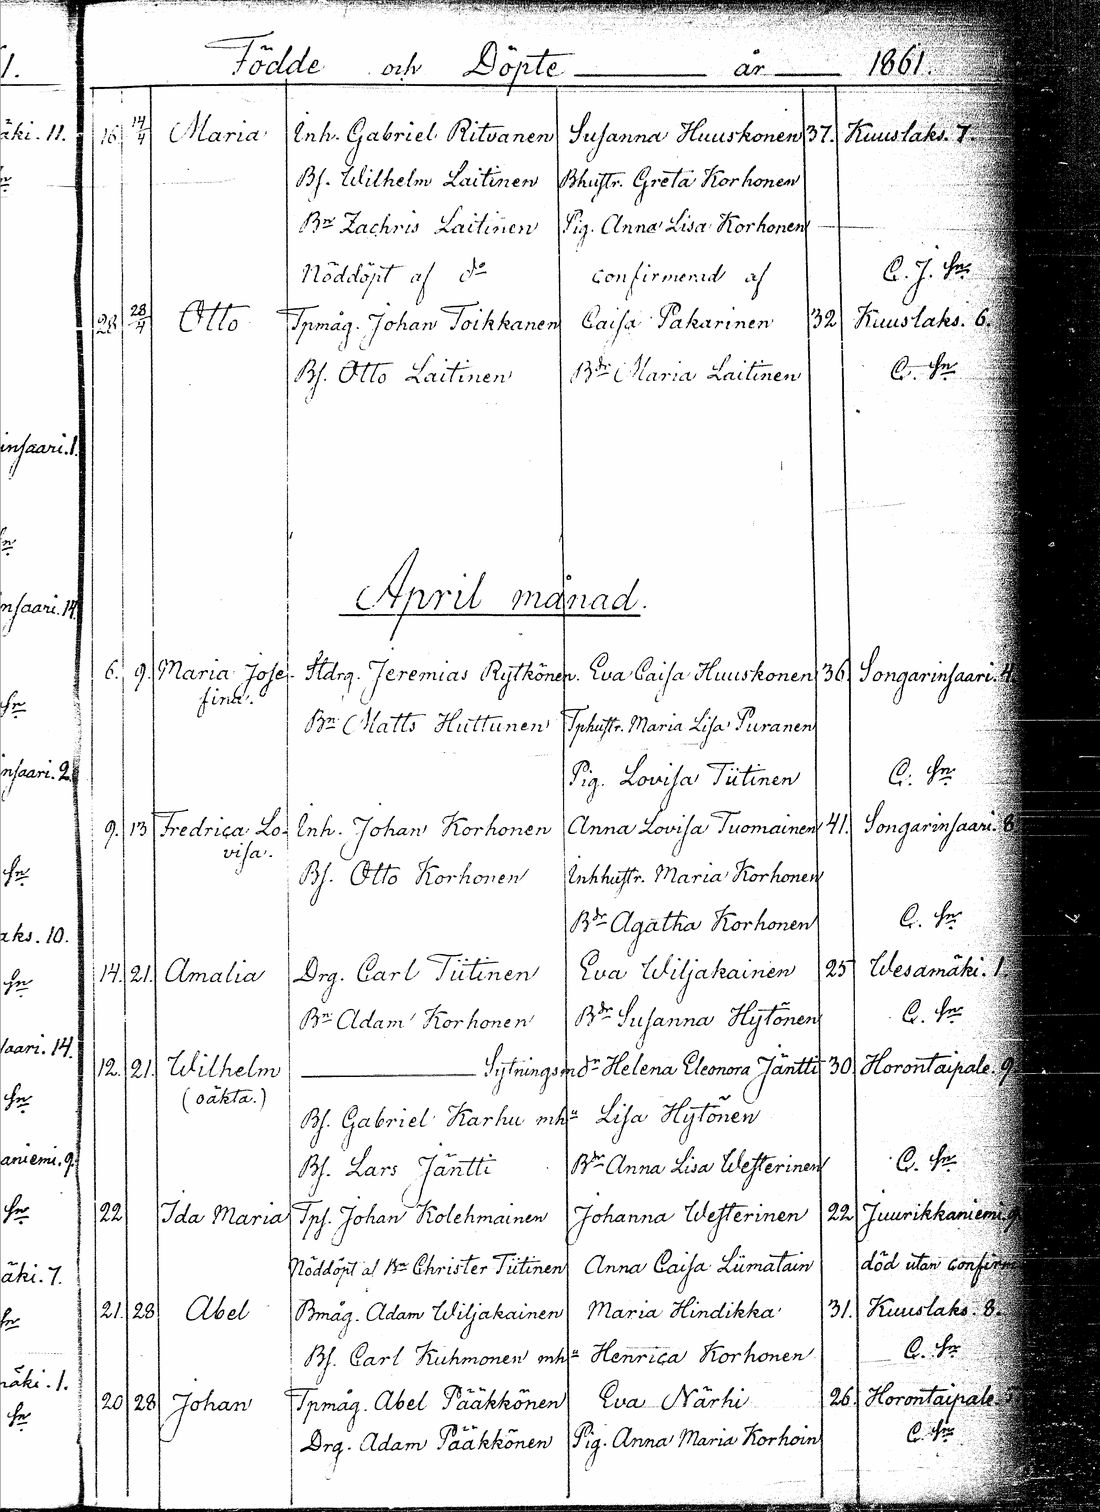 Födde och Döpte år 1861.
16 14/4 Maria Inh. Gabriel Ritvanen Susanna Huuskonen 37. Kuuslaks. 7.
Bs. Wilhelm Laitinen Bhustr. Greta Korhonen
Bn Zachris Laitinen Pig. Anna Lisa Korhonen
Nöddöpt af do confirmerad af C. J. Sn
28 28/4 Otto Tpmåg. Johan Toikkanen Caisa Pakarinen 32 Kuuslaks. 6.
Bs. Otto Laitinen Bdr Maria Laitinen C. Sn
April månad.
6. 9. Maria Jose- Stdrg. Jeremias Rytkönen. Eva Caisa Huuskonen 36 Songarinsaari. 4
fina.
Bn Matts Huttunen Tphustr. Maria Lisa Puranen
Pig. Lovisa Tiitinen C. Sn
9. 13 Fredrica Lo- Inh. Johan Korhonen Anna Lovisa Tuomainen 41. Songarinsaari. 8
visa.
Bs. Otto Korhonen Inhhustr. Maria Korhonen
Bdr Agatha Korhonen C. Sn
14. 21. Amalia Drg. Carl Tiitinen Eva Wiljakainen 25 Wesamäki. 1.
Bn Adam Korhonen Bdr Susanna Hytönen C. Sn
12. 21. Wilhelm Sytningsmdr Helena Eleonora Jäntti 30 Horontaipale. 9.
(oäkta.)
Bs. Gabriel Karhu mhu Lisa Hytönen
Bs. Lars Jäntti Bdr Anna Lisa Westerinen C. Sn
22 Ida Maria Tps. Johan Kolehmainen Johanna Westerinen 22 Juurikkaniemi. 9.
Nöddöpt af Bn Christer Tiitinen Anna Caisa Liimatain död utan confirm
21. 28 Abel Bmåg. Adam Wiljakainen Maria Hindikka 31. Kuuslaks. 8.
Bs. Carl Kuhmonen mhu Henrica Korhonen C. Sn
20 28 Johan Tpmåg. Abel Pääkkönen Eva Närhi 26. Horontaipale.
Drg. Adam Pääkkönen Pig. Anna Maria Korhoin C. Sn